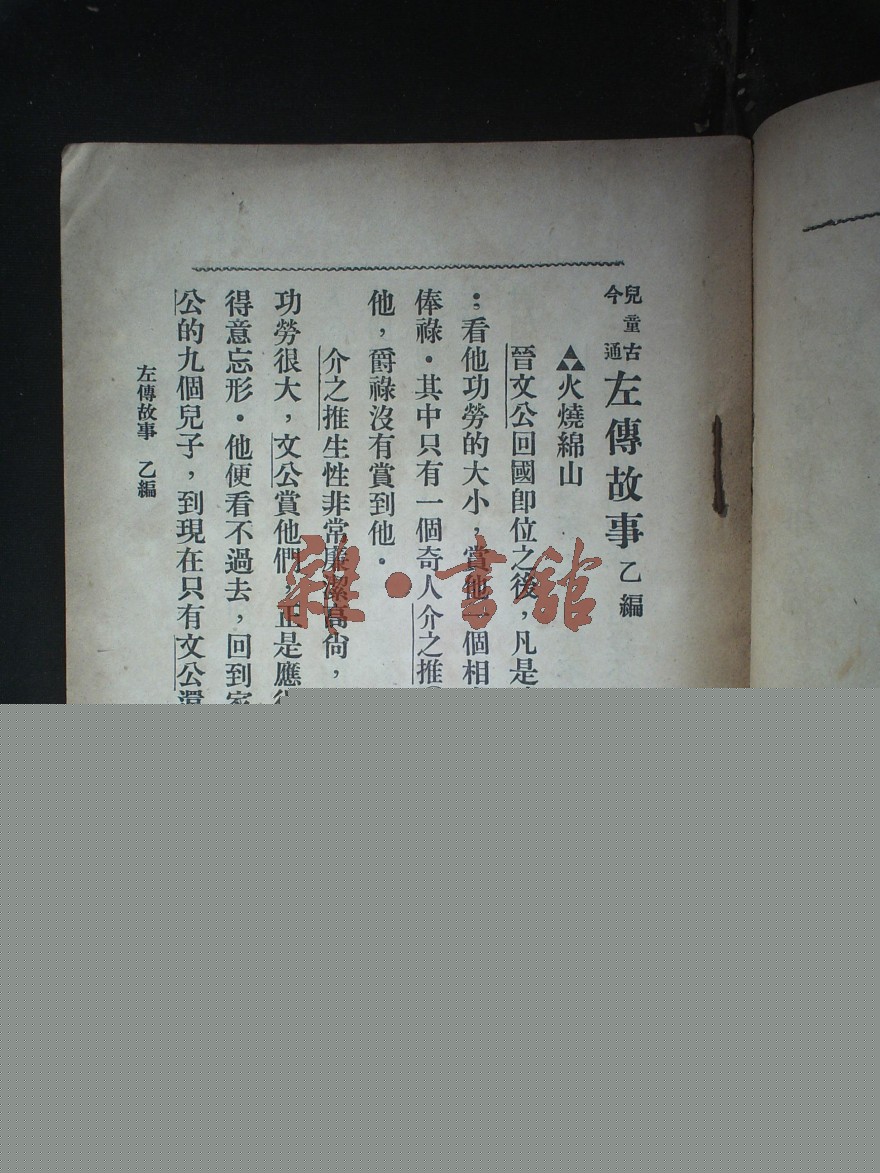 兒童古今通 左傳故事 乙編
火燒綿山
晉文公回國卽位之後，凡是
；看他功勞的大小，賞他一個相
俸祿．其中只有一個奇人介之推
他，爵祿沒有賞到他．
介之推生性非常廉潔高尙，
功勞很大，文公賞他們，正是應
得意忘形．他便看不過去，回到
公的九個兒子，到現在只有文公還
左傳故事 乙編
雜·書館